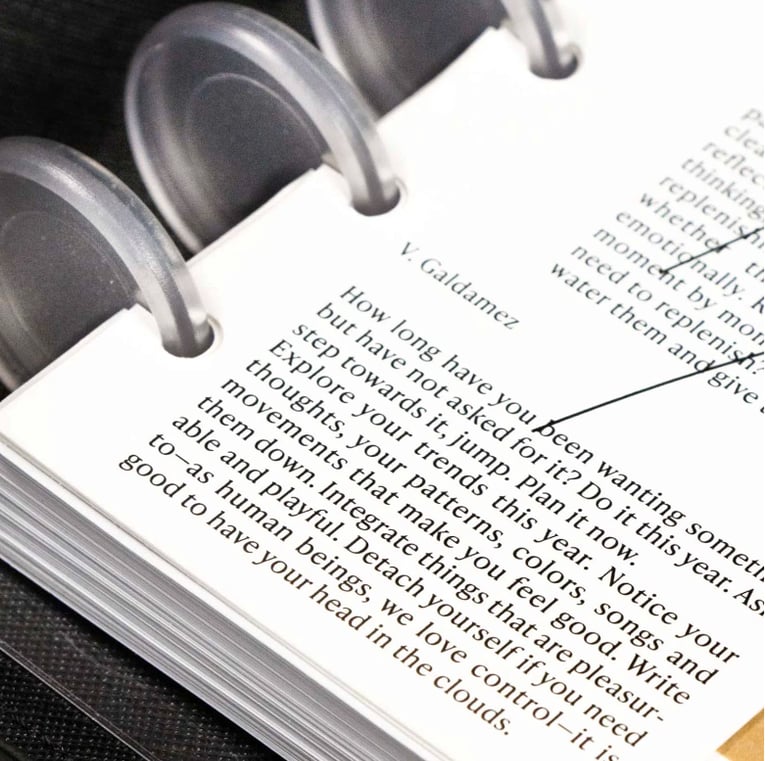 clea
reflec
thinking
replenish
whether th
emotionally.
moment by mom
need to replenish?
water them and give
V. Galdamez
How long have you been wanting someth
but have not asked for it? Do it this year. As
step towards it, jump. Plan it now.
Explore your trends this year. Notice your
thoughts, your patterns, colors, songs and
movements that make you feel good. Write
them down. Integrate things that are pleasur-
able and playful. Detach yourself if you need
to—as human beings, we love control—it is
good to have your head in the clouds.